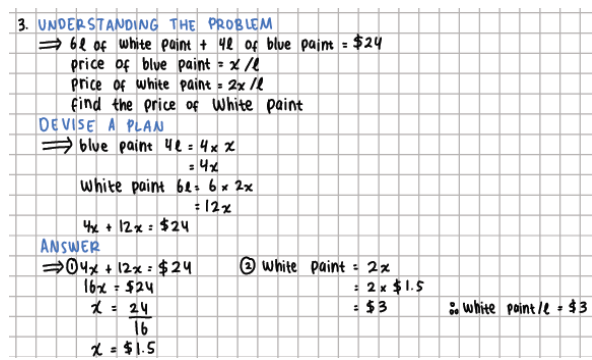 3. UNDERSTANDING THE PROBLEM
⇒ 6l of white paint + 4l of blue paint = $24
price of blue paint = x /l
price of white paint = 2x /l
find the price of white paint
DEVISE A PLAN
⇒ blue paint 4l = 4 x x
= 4x
white paint 6l = 6 x 2x
= 12x
4x + 12x = $24
ANSWER
⇒ ① 4x + 12x = $24
16x = $24
x = 24
16
x = $1.5
② White paint = 2x
= 2 x $1.5
= $3
∴ white paint/l = $3